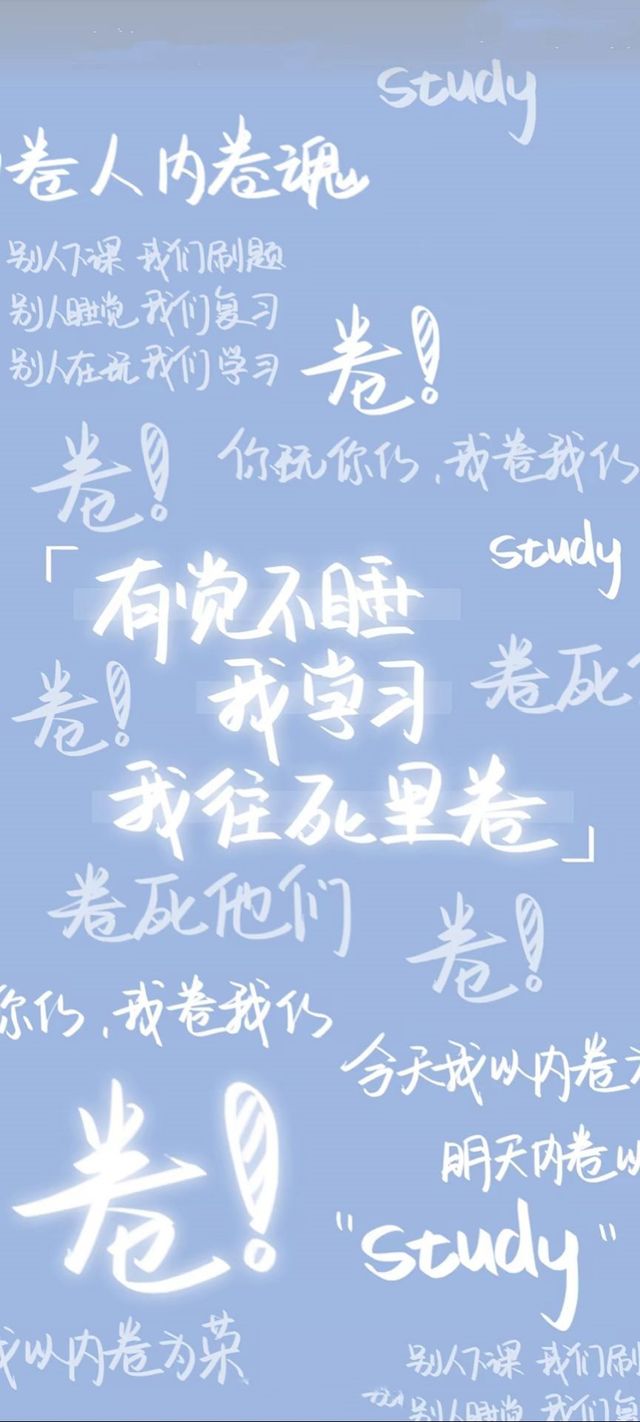 study
卷人内卷魂
别人下课 我们刷题
别人睡觉 我们复习
别人在玩 我们学习
卷!
卷!
你玩你的,我卷我的
study
「有觉不睡
我学习
我往死里卷」
卷!
卷死他
卷死他们
卷!
你的,我卷我的
今天我以内卷为
明天内卷以
卷!
"study"
我以内卷为荣
别人下课 我们刷
别人睡觉 我们复